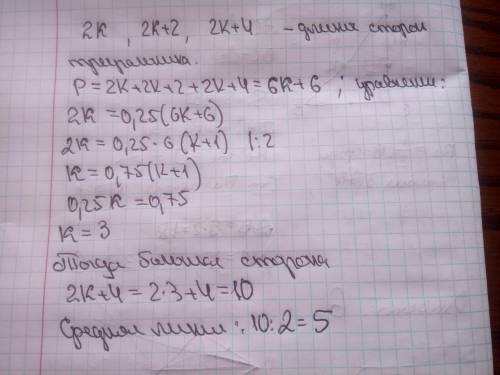 2К, 2К+2, 2К+4 - длины сторон
треугольника.
P = 2К+2К+2+2К+4=6К+6 ; уравнение:
2К=0,25(6К+6)
2К=0,25·6(К+1) |:2
К=0,75(К+1)
0,25К=0,75
К=3
Тогда большая сторона
2К+4=2·3+4=10
Средняя линия: 10:2=5